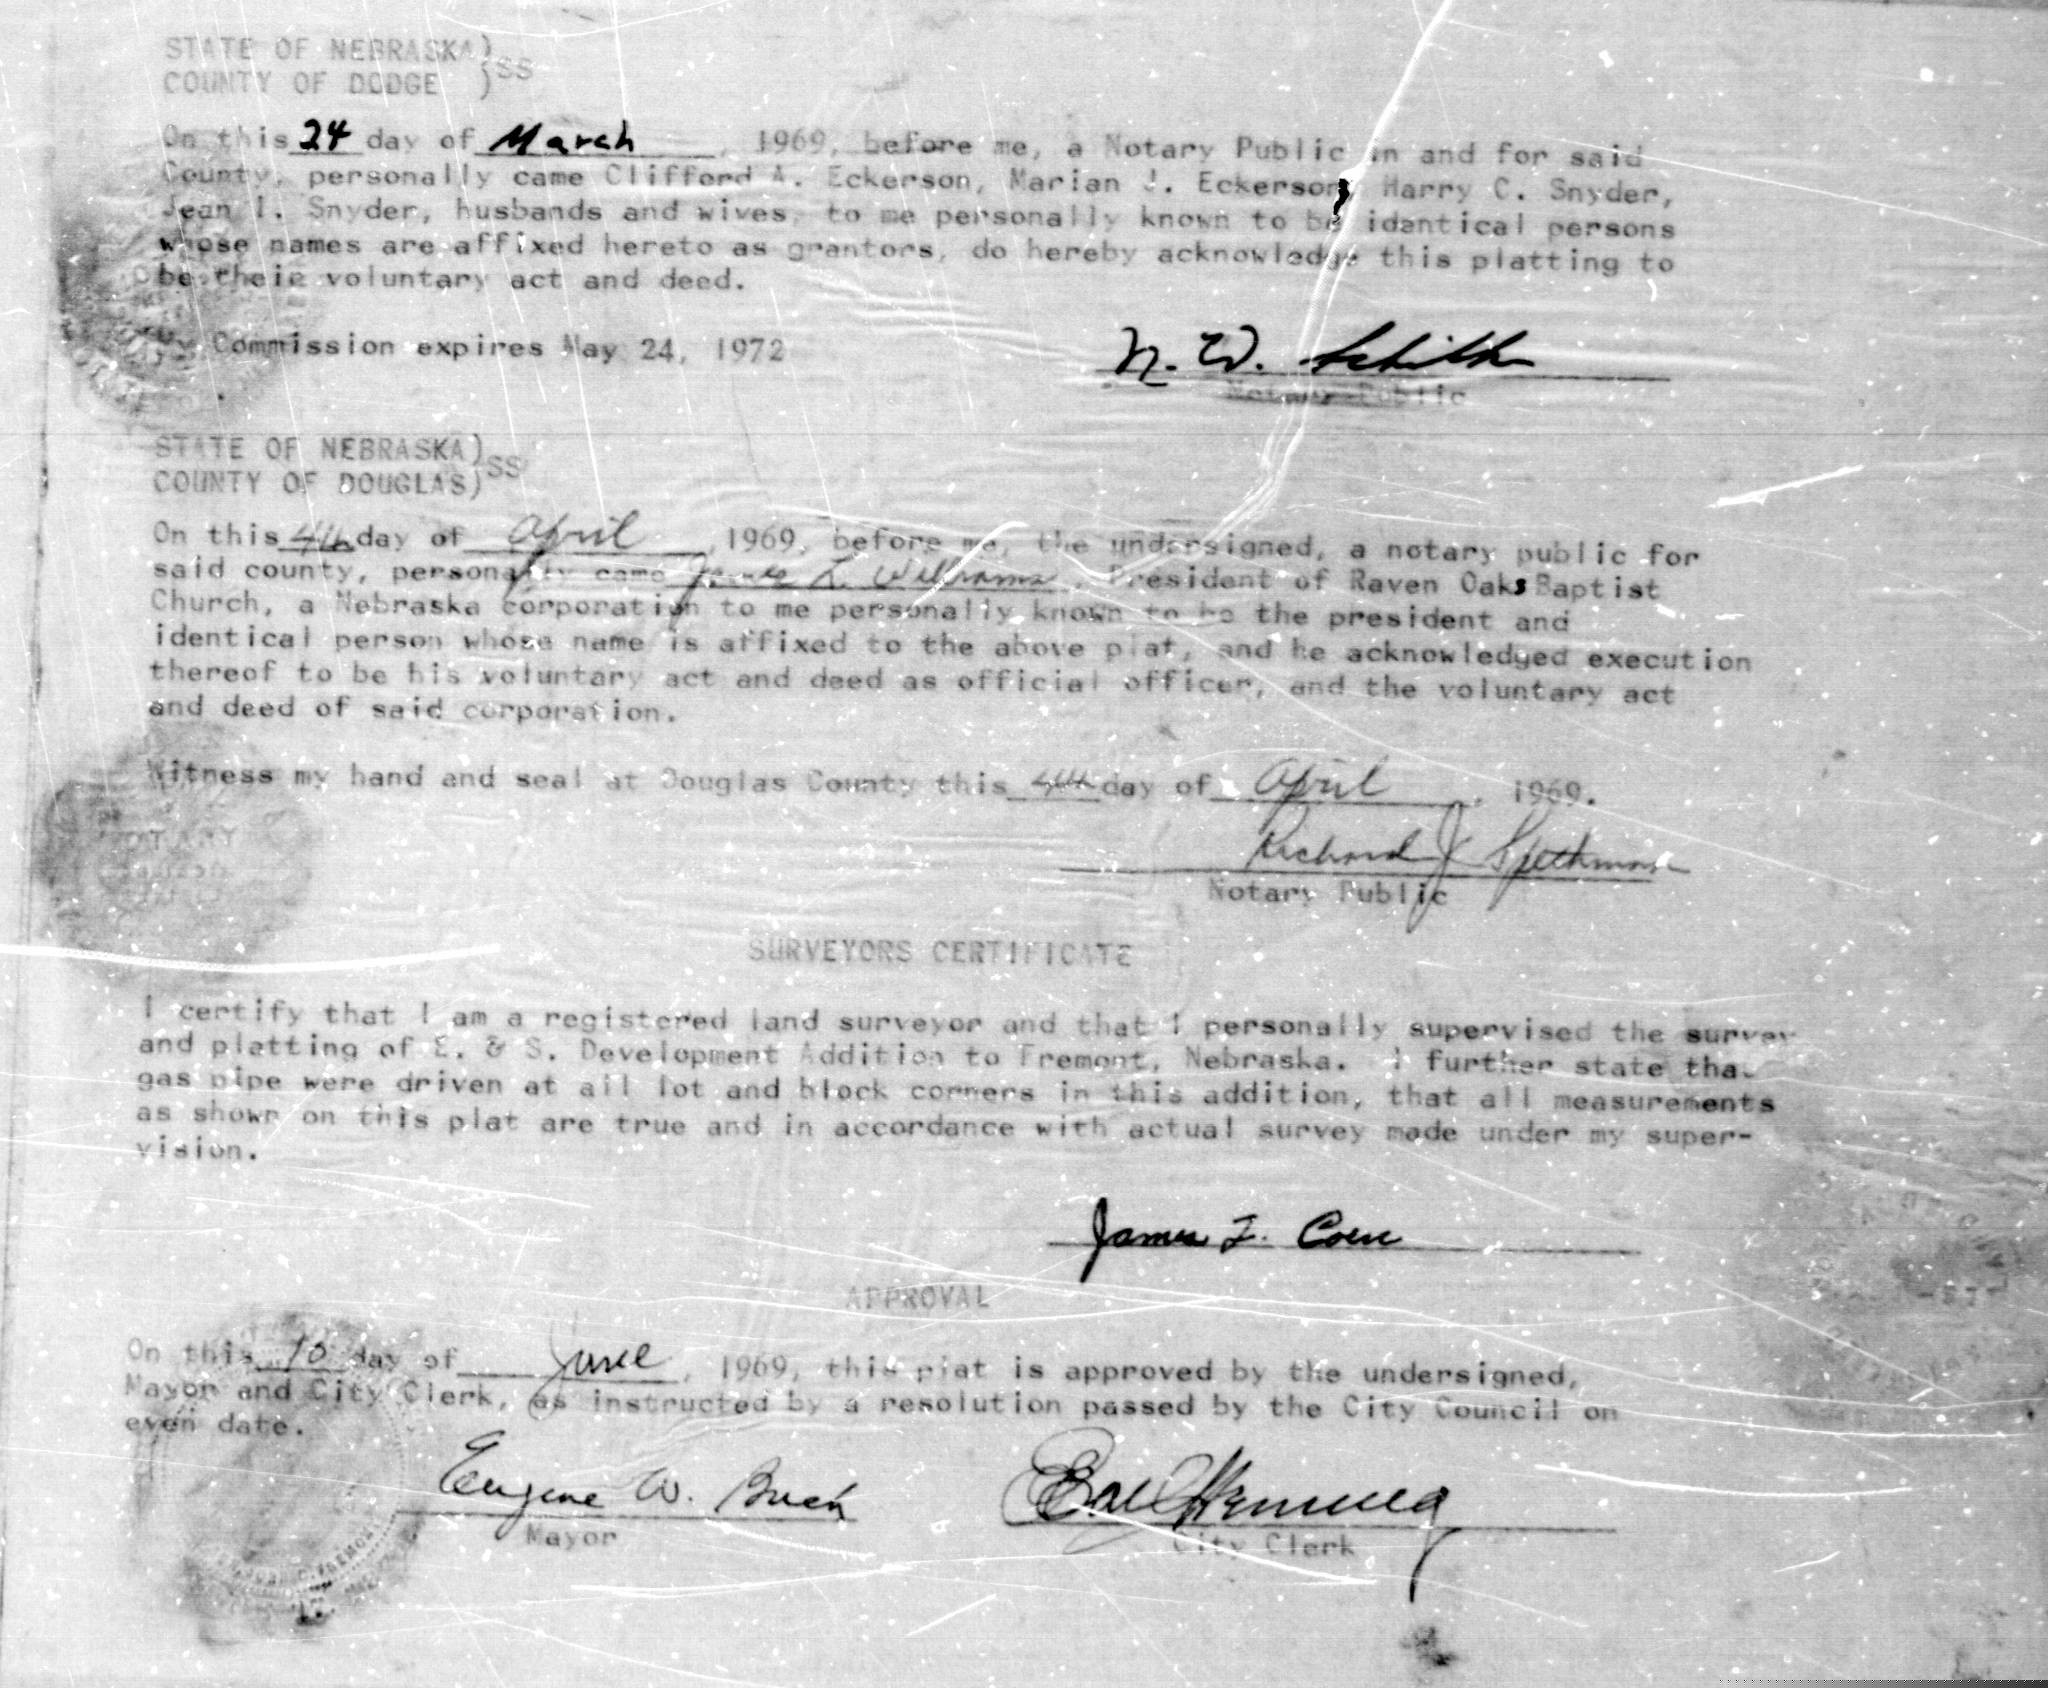 STATE OF NEBRASKA)
SS
COUNTY OF DODGE )
On this 24 day of March , 1969, before me, a Notary Public in and for said
County, personally came Clifford A. Eckerson, Marian J. Eckerson, Harry C. Snyder,
Jean I. Snyder, husbands and wives, to me personally known to be identical persons
whose names are affixed hereto as grantors, do hereby acknowledge this platting to
be their voluntary act and deed.
My Commission expires May 24, 1972
N. W.
Notary Public
STATE OF NEBRASKA)
SS
COUNTY OF DOUGLAS)
On this 4th day of April , 1969, before me, the undersigned, a notary public for
said county, personally came James L. Williams , President of Raven Oaks Baptist
Church, a Nebraska corporation to me personally known to be the president and
identical person whose name is affixed to the above plat, and he acknowledged execution
thereof to be his voluntary act and deed as official officer, and the voluntary act
and deed of said corporation.
Witness my hand and seal at Douglas County this 4th day of April , 1969.
Richard J Spethman
Notary Public
SURVEYORS CERTIFICATE
I certify that I am a registered land surveyor and that I personally supervised the survey
and platting of E. & S. Development Addition to Fremont, Nebraska. I further state that
gas pipe were driven at all lot and block corners in this addition, that all measurements
as shown on this plat are true and in accordance with actual survey made under my super-
vision.
James F. Coen
APPROVAL
On this 10 day of June , 1969, this plat is approved by the undersigned,
Mayor and City Clerk, as instructed by a resolution passed by the City Council on
even date.
Eugene W. Buck
Mayor
City Clerk